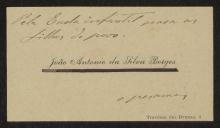 Pela Escola infantil para os
filhos do povo.
João Antonio da Silva Borges
Travessa das Bruxas, 3